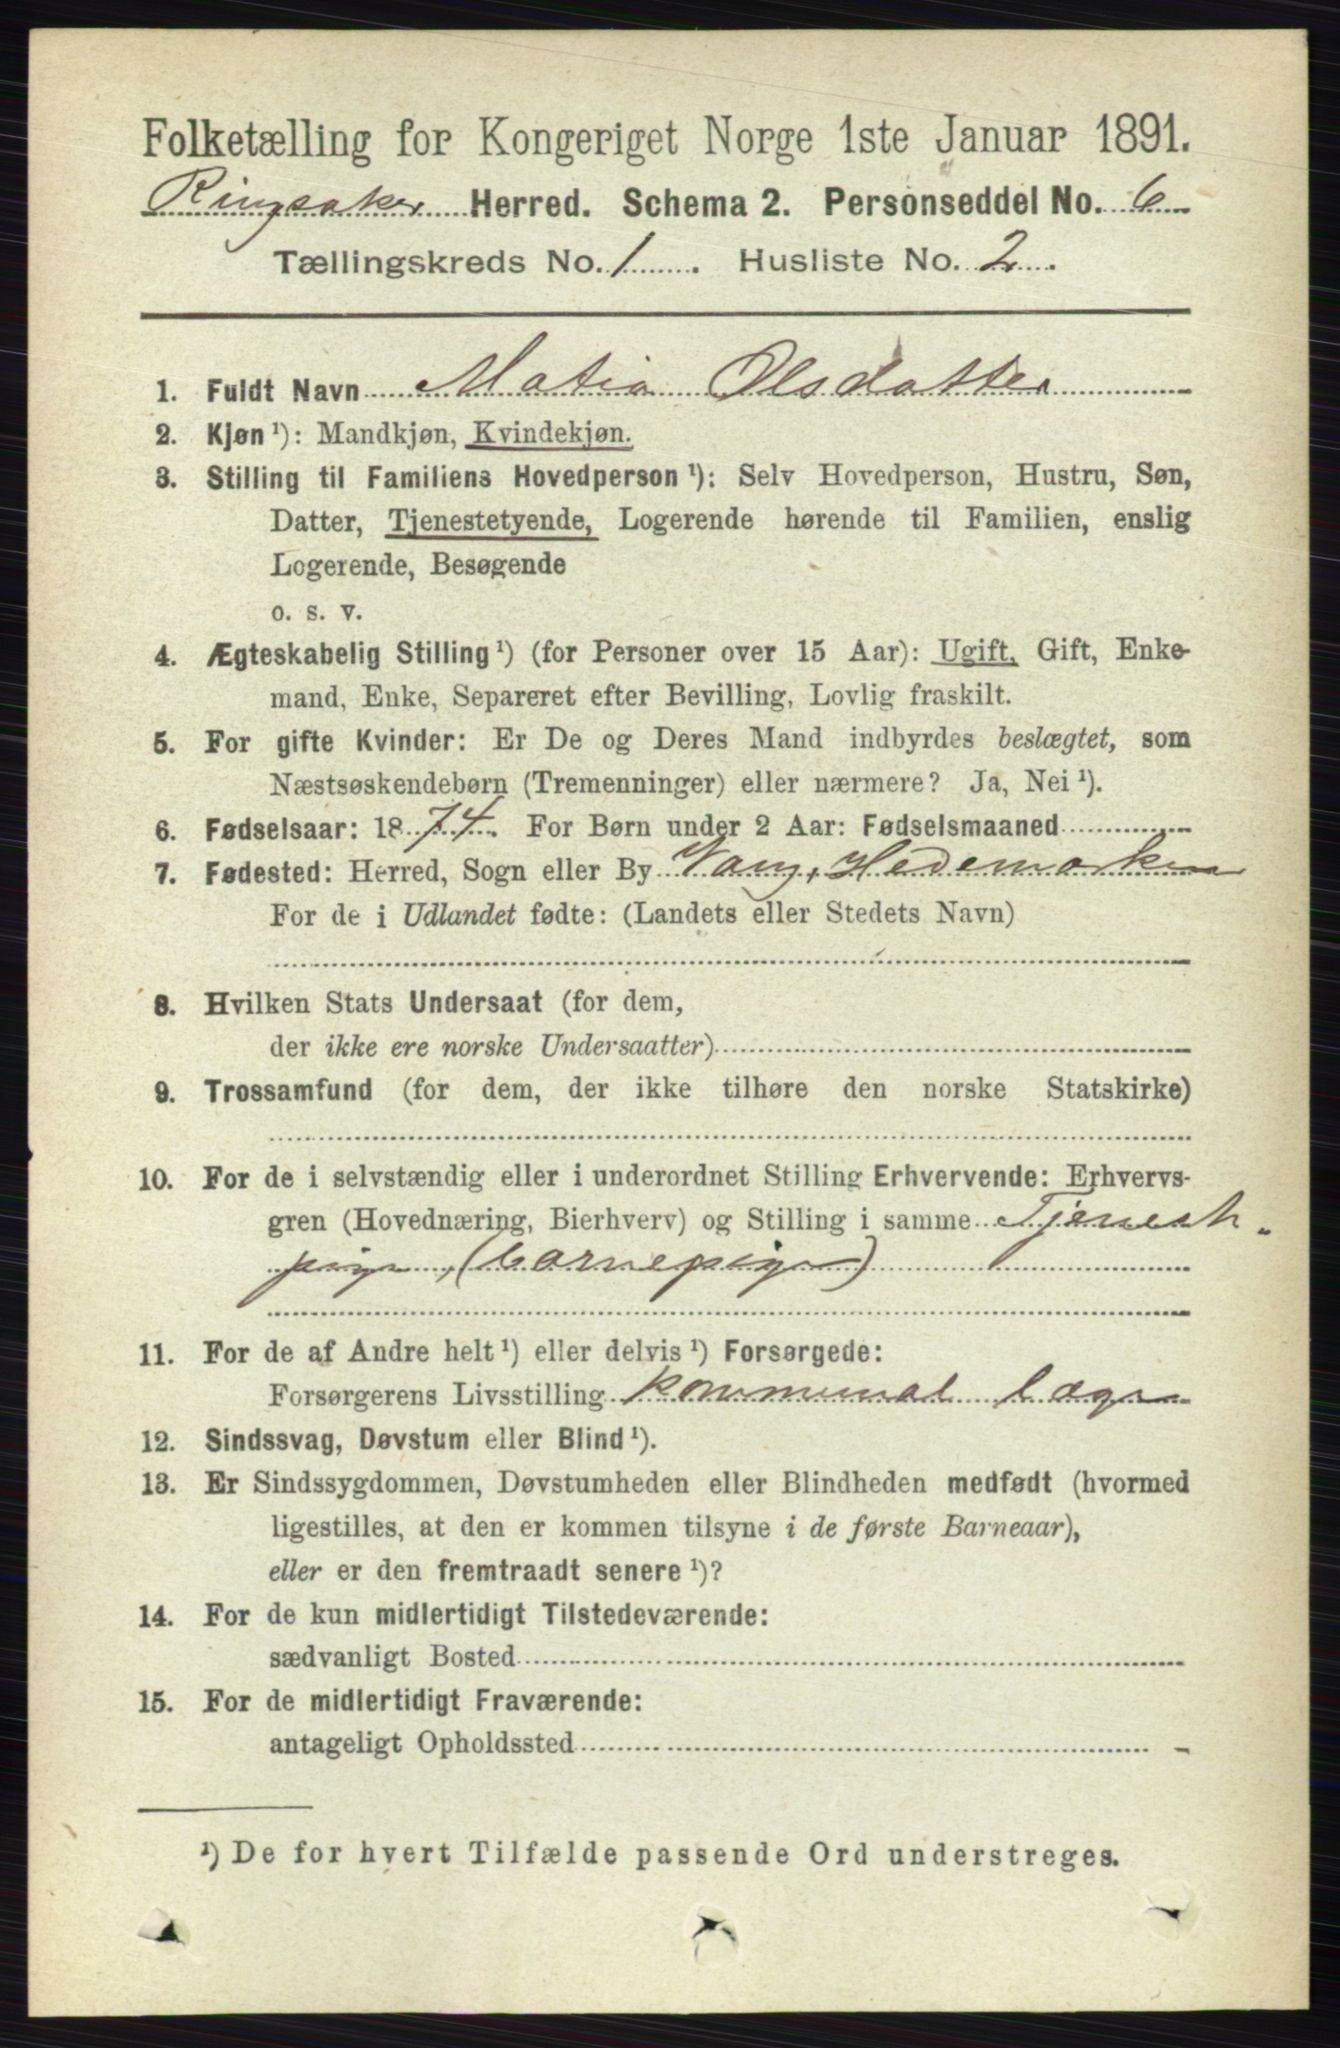 Folketælling for Kongeriget Norge 1ste Januar 1891.
Ringsaker Herred. Schema 2. Personseddel No. 6
Tællingskreds No. 1. Husliste No. 2.
1. Fuldt Navn Matia Olsdatter
2. Kjøn ¹): Mandkjøn, Kvindekjøn.
3. Stilling til Familiens Hovedperson ¹): Selv Hovedperson, Hustru, Søn,
Datter, Tjenestetyende, Logerende hørende til Familien, enslig
Logerende, Besøgende
o. s. v.
4. Ægteskabelig Stilling ¹) (for Personer over 15 Aar): Ugift, Gift, Enke-
mand, Enke, Separeret efter Bevilling, Lovlig fraskilt.
5. For gifte Kvinder: Er De og Deres Mand indbyrdes beslægtet, som
Næstsøskendebørn (Tremenninger) eller nærmere? Ja, Nei ¹).
6. Fødselsaar: 1874. For Børn under 2 Aar: Fødselsmaaned
7. Fødested: Herred, Sogn eller By Vang, Hedemarken
For de i Udlandet fødte: (Landets eller Stedets Navn)
8. Hvilken Stats Undersaat (for dem,
der ikke ere norske Undersaatter)
9. Trossamfund (for dem, der ikke tilhøre den norske Statskirke)
10. For de i selvstændig eller i underordnet Stilling Erhvervende: Erhvervs-
gren (Hovednæring, Bierhverv) og Stilling i samme Tjenest-
pige, (barnepige)
11. For de af Andre helt ¹) eller delvis ¹) Forsørgede:
Forsørgerens Livsstilling kommunal læge
12. Sindssvag, Døvstum eller Blind ¹).
13. Er Sindssygdommen, Døvstumheden eller Blindheden medfødt (hvormed
ligestilles, at den er kommen tilsyne i de første Barneaar),
eller er den fremtraadt senere ¹)?
14. For de kun midlertidigt Tilstedeværende:
sædvanligt Bosted
15. For de midlertidigt Fraværende:
antageligt Opholdssted
¹) De for hvert Tilfælde passende Ord understreges.